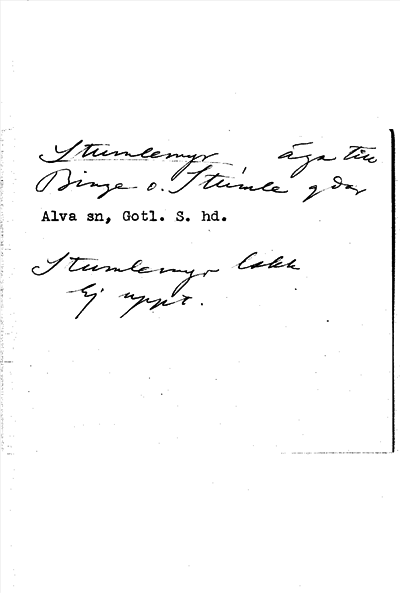 Stumlemyr äga till
Binge o. Stumle gdar
Alva sn, Gotl. S. hd.
Stumlemyr lakk
Ej uppt.